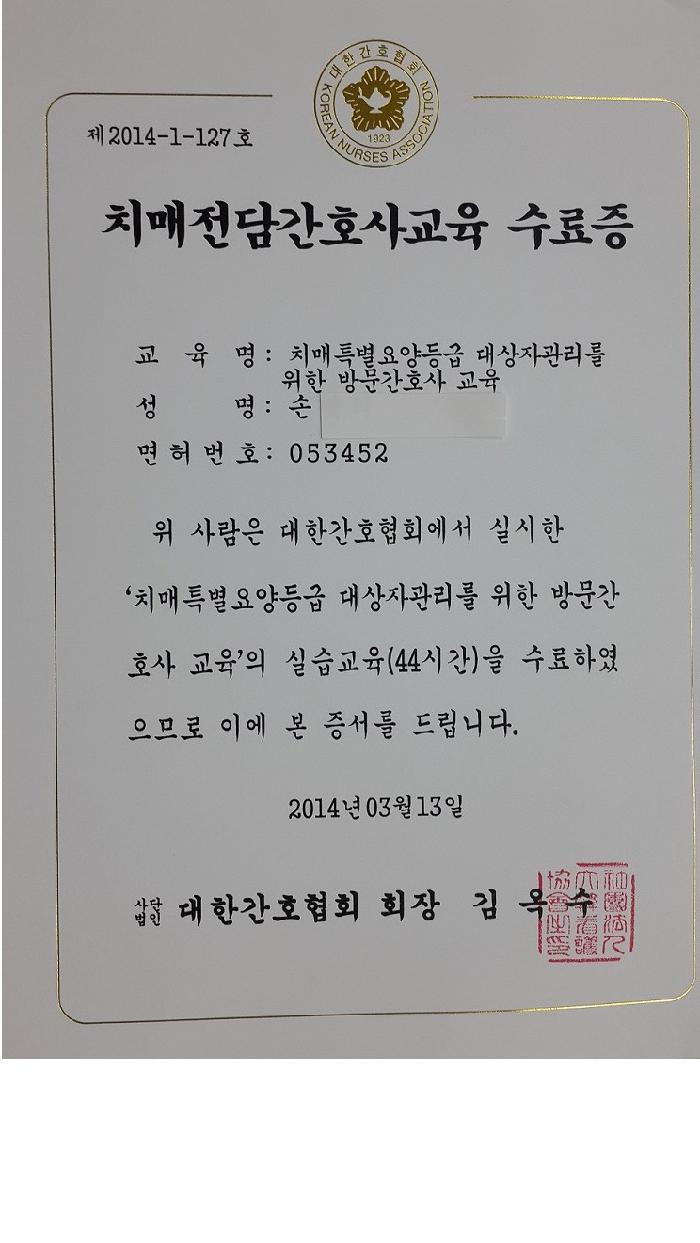 대한간호협회
KOREAN NURSES ASSOCIATION
1923
제2014-1-127호
치매전담간호사교육 수료증
교 육 명: 치매특별요양등급 대상자관리를
위한 방문간호사 교육
성 명: 손
면허번호: 053452
위 사람은 대한간호협회에서 실시한
‘치매특별요양등급 대상자관리를 위한 방문간
호사 교육’의 실습교육(44시간)을 수료하였
으므로 이에 본 증서를 드립니다.
2014년 03월 13일
사단법인 대한간호협회 회장 김 옥 수